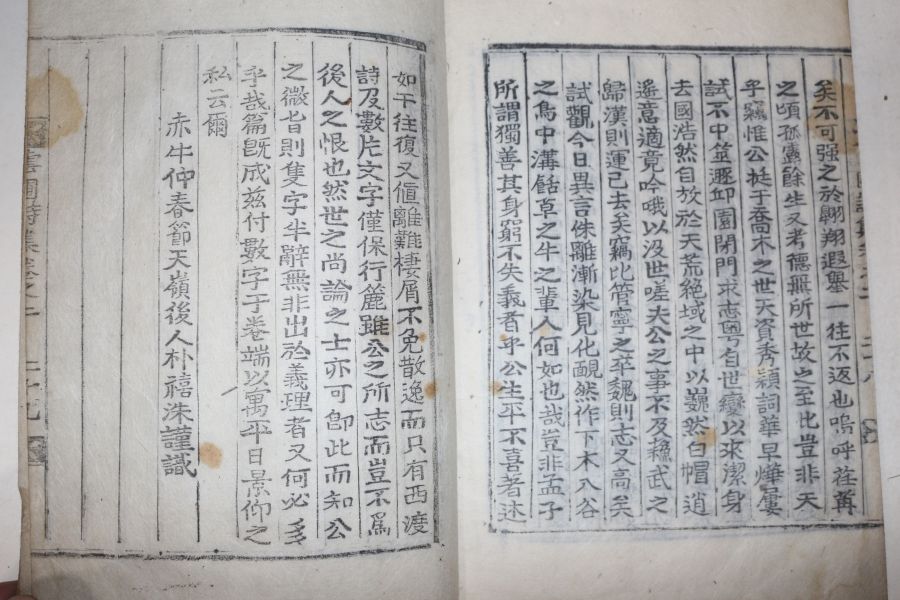 矣不可强之於翺翔遐擧一往不返也嗚呼荏苒
之頃孤露餘生又考德無所世故之至比豈非天
乎竊惟公挺于喬木之世天資秀穎詞華早燁屢
試不中並邂邱園閉門求志粤自世變以來潔身
去國浩然自放於天荒絶域之中以巍然白帽逍
遙意適竟吟哦以没世嗟夫公之事不及穪武之
歸漢則運已去矣竊比管寧之卒魏則志又高矣
試觀今日異言侏離漸染見化靦然作下木入谷
之鳥中溝餂草之牛之輩人何如也哉豈非孟子
所謂獨善其身窮不失義者乎公生平不喜者述
如干往復又値離難棲屑不免散逸而只有西渡
詩及數片文字僅保行簏雖公之所志而豈不爲
後人之恨也然世之尚論之士亦可卽此而知公
之微旨則隻字半辭無非出於義理者又何必多
乎哉篇旣成玆付數字于卷端以寓平日景仰之
私云爾
赤牛仲春節天嶺後人朴禧洙謹識
詩集卷之二 二十九